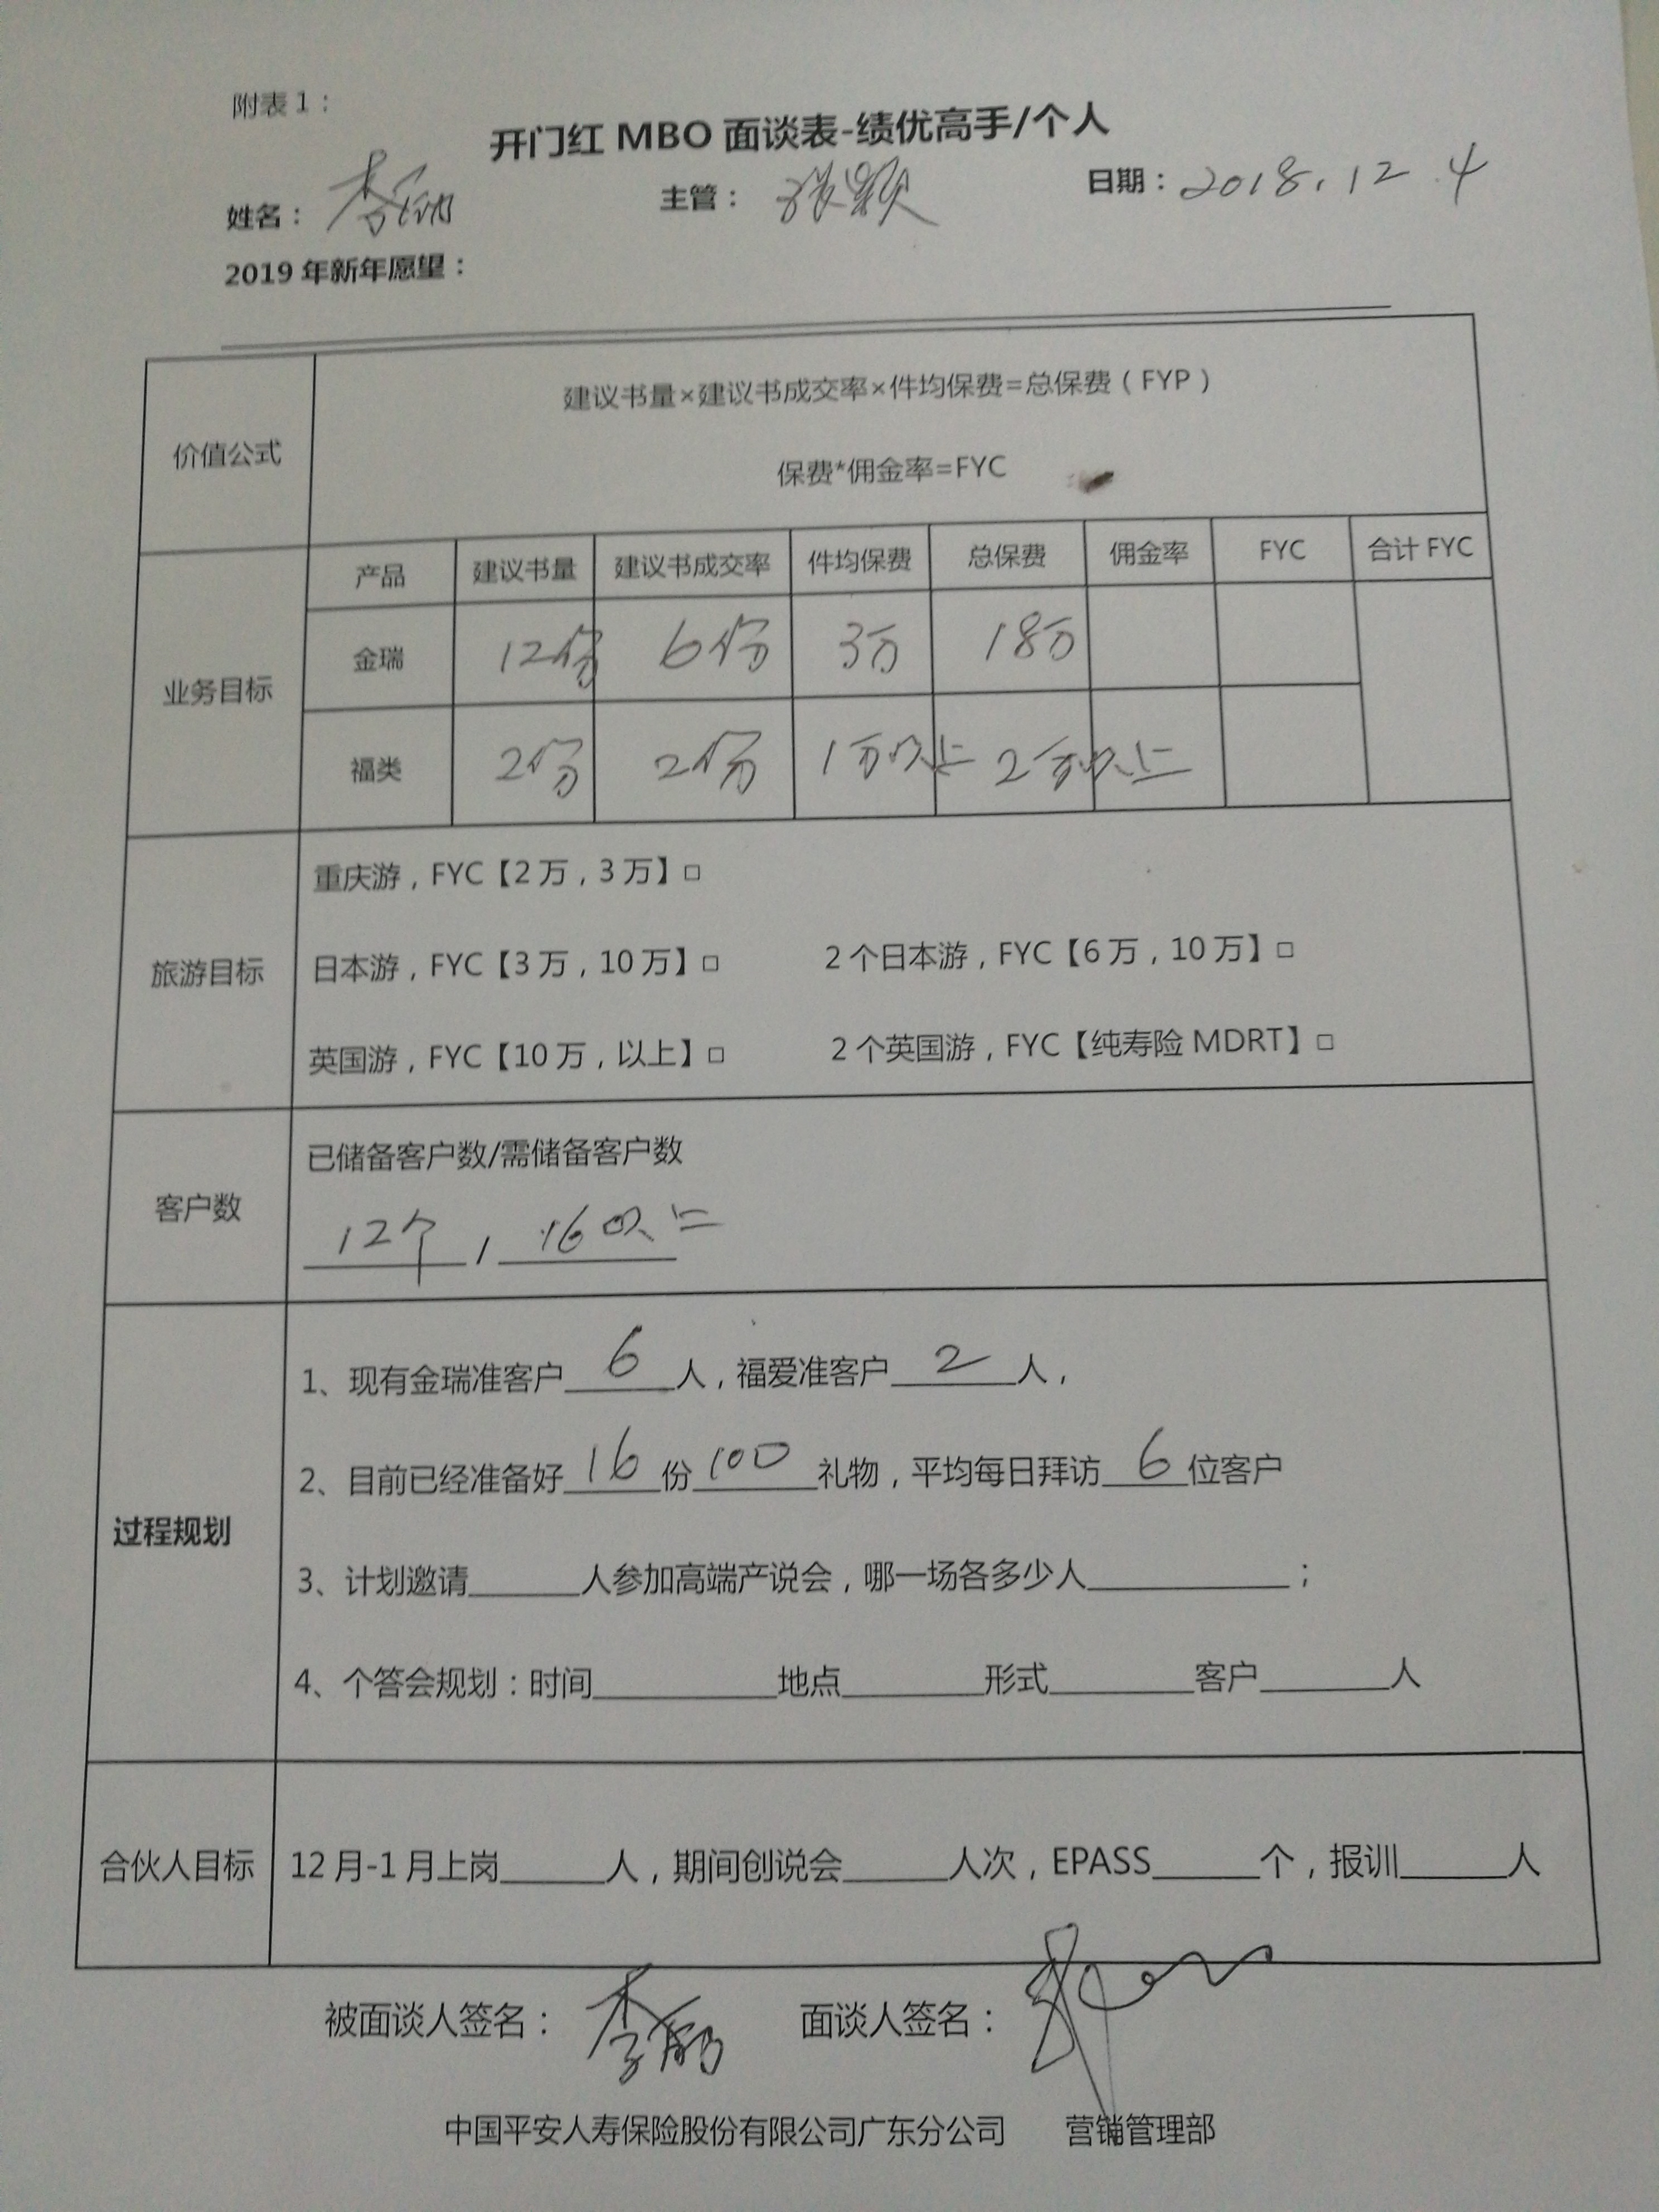 附表1：
开门红 MBO 面谈表-绩优高手/个人
姓名： 主管：张颖 日期：2018.12.4
2019年新年愿望：
价值公式
建议书量×建议书成交率×件均保费=总保费（FYP）
保费*佣金率=FYC
业务目标
产品 建议书量 建议书成交率 件均保费 总保费 佣金率 FYC 合计FYC
金瑞 12份 6份 3万 18万
福类 2份 2份 1万以上 2万以上
旅游目标
重庆游，FYC【2万，3万】□
日本游，FYC【3万，10万】□ 2个日本游，FYC【6万，10万】□
英国游，FYC【10万，以上】□ 2个英国游，FYC【纯寿险MDRT】□
客户数
已储备客户数/需储备客户数
12个 / 16以上
过程规划
1、现有金瑞准客户6人，福爱准客户2人，
2、目前已经准备好16份100礼物，平均每日拜访6位客户
3、计划邀请______人参加高端产说会，哪一场各多少人__________；
4、个答会规划：时间__________地点________形式________客户_______人
合伙人目标
12月-1月上岗______人，期间创说会______人次，EPASS______个，报训______人
被面谈人签名： 面谈人签名：
中国平安人寿保险股份有限公司广东分公司 营销管理部